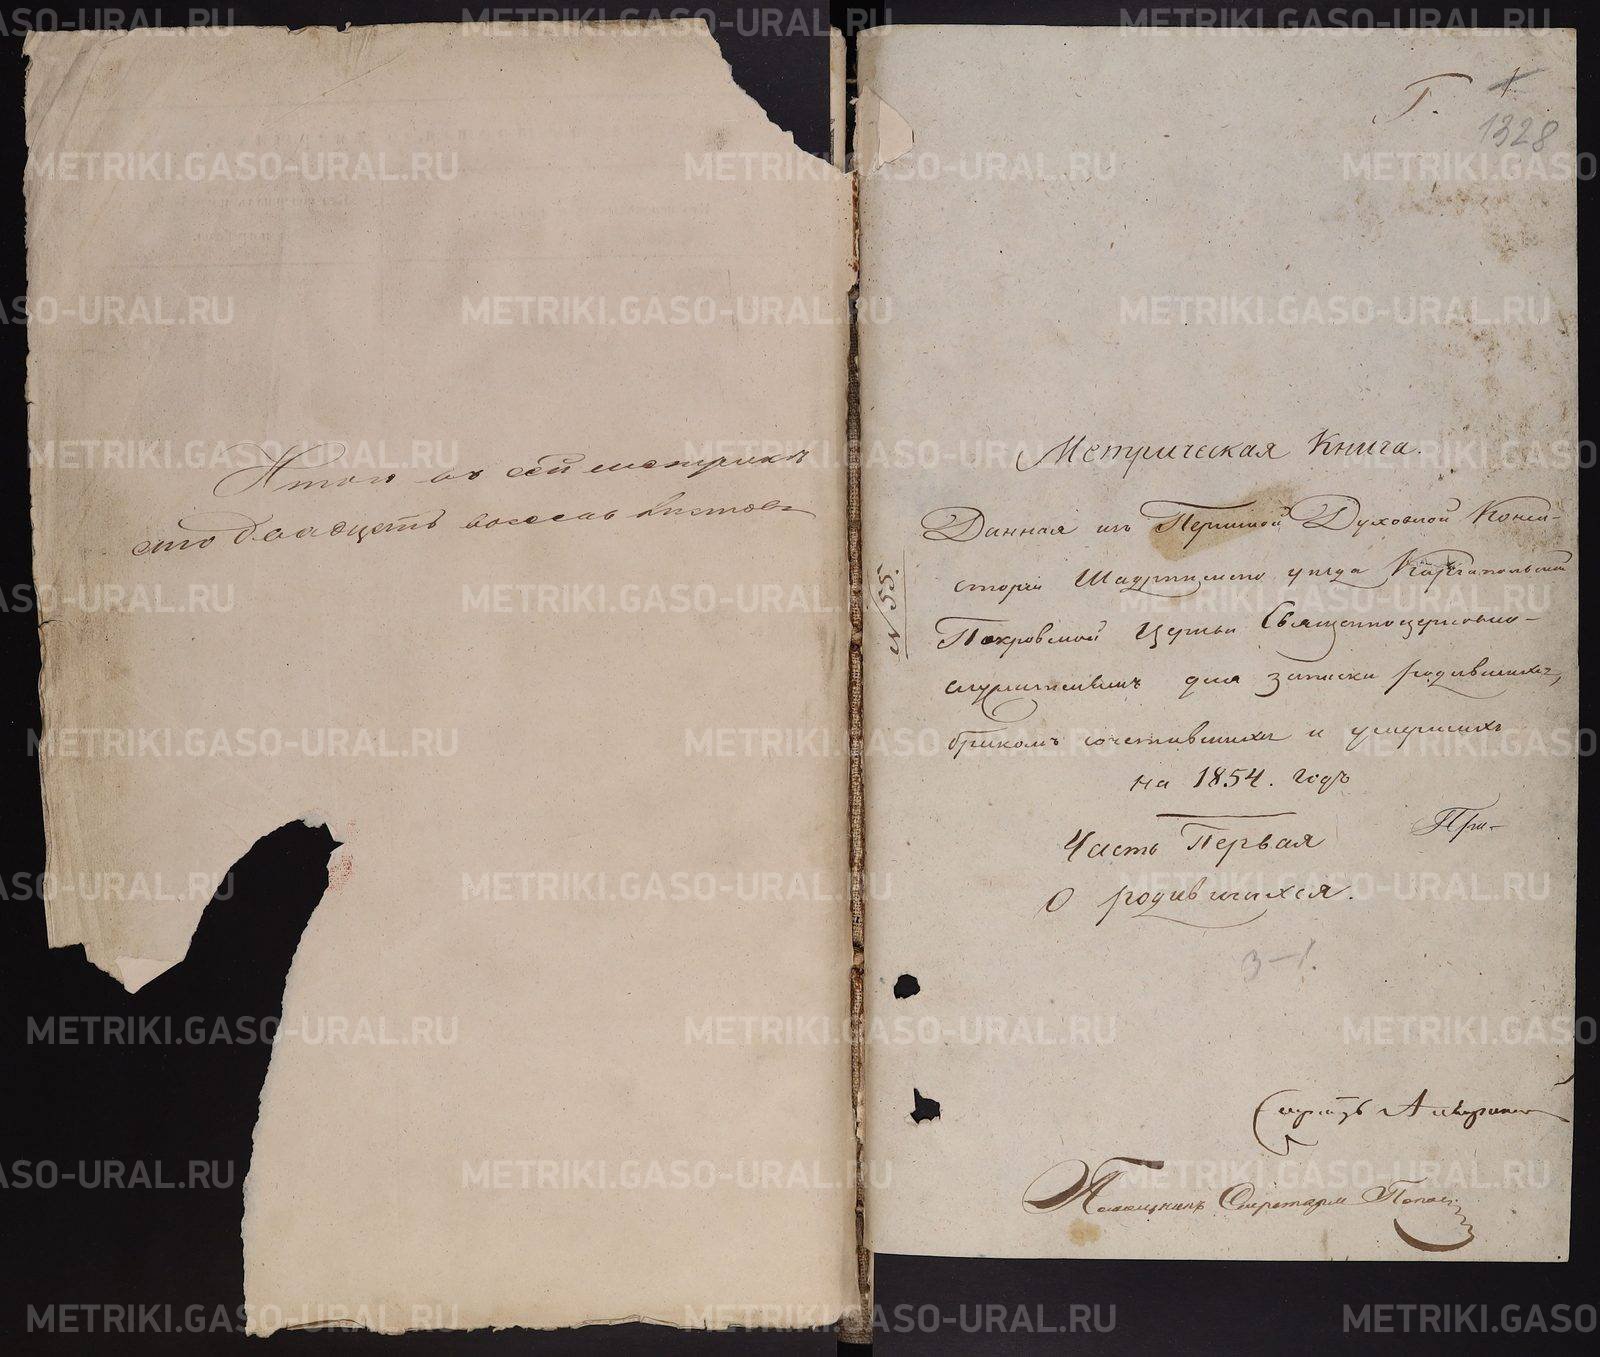 Итого въ сей метрикѣ
сто двадцать восемь листовъ
Г. 1
1328
Метрическая Книга.
Данная изъ Пермской Духовной Конси-
сторіи Шадринскаго уѣзда Каргапольской
№ 55.
Покровской Церкви Священноцерковно-
служителямъ для записки родившихся,
бракомъ сочетавшихся и умершихъ
на 1854. годъ
При-
Часть Первая
О родившихся.
3-1.
Секретарь
Помощникъ Секретаря Попов
METRIKI.GASO-URAL.RU